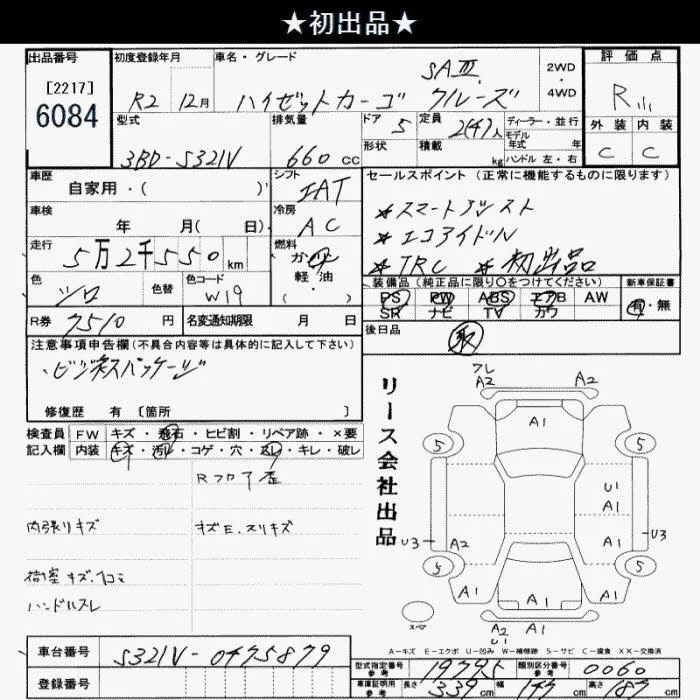 ★初出品★
出品番号 初度登録年月 車名・グレード 評価点
[2217]
6084
R2 12月 ハイゼットカーゴ SAⅢ クルーズ 2WD・4WD
型式 排気量 ドア 定員 ディーラー・並行 外装 内装
3BD-S321V 660cc 5 2(4)人 モデル年式 年 C C
形状 積載 kg ハンドル 左・右
車歴 シフト セールスポイント(正常に機能するものに限ります)
自家用・( ) IAT
＊スマートアシスト
車検 冷房
年 月( 日) AC
＊エコアイドル
走行 燃料
5万2千550km ガソリン
軽油
( )
＊TRC ＊初出品
色 色替 色コード 装備品(純正品に限り○をつけてください) 新車保証書
シロ W19 PS PW ABS エアB AW 有・無
SR ナビ TV カワ
R券 7510円 名変通知期限 月 日 後日品
取
注意事項申告欄(不具合内容等は具体的に記入して下さい)
・ビジネスパッケージ
修復歴 有 [箇所 ]
検査員 FW キズ・飛石・ヒビ割・リペア跡・×要
記入欄 内装 キズ・汚れ・コゲ・穴・スレ・キレ・破レ
Rフロア歪
内張りキズ キズE.スリキズ
荷室キズ.凹コミ
ハンドルスレ
リース会社出品
フレ
A2 A2
A1
5 5
U1
A1
U3 A2 A1 U3
5 5
A1 A1 A1
スペア A2 A1
U1
A-キズ E-エクボ U-凹み W-補修跡 S-サビ C-腐食 XX-交換済
車台番号 S321V-0475879
登録番号
型式指定番号 参考 類別区分番号 参考 0060
車庫証明用 参考 長さ 339cm 幅 147cm 高さ 187cm